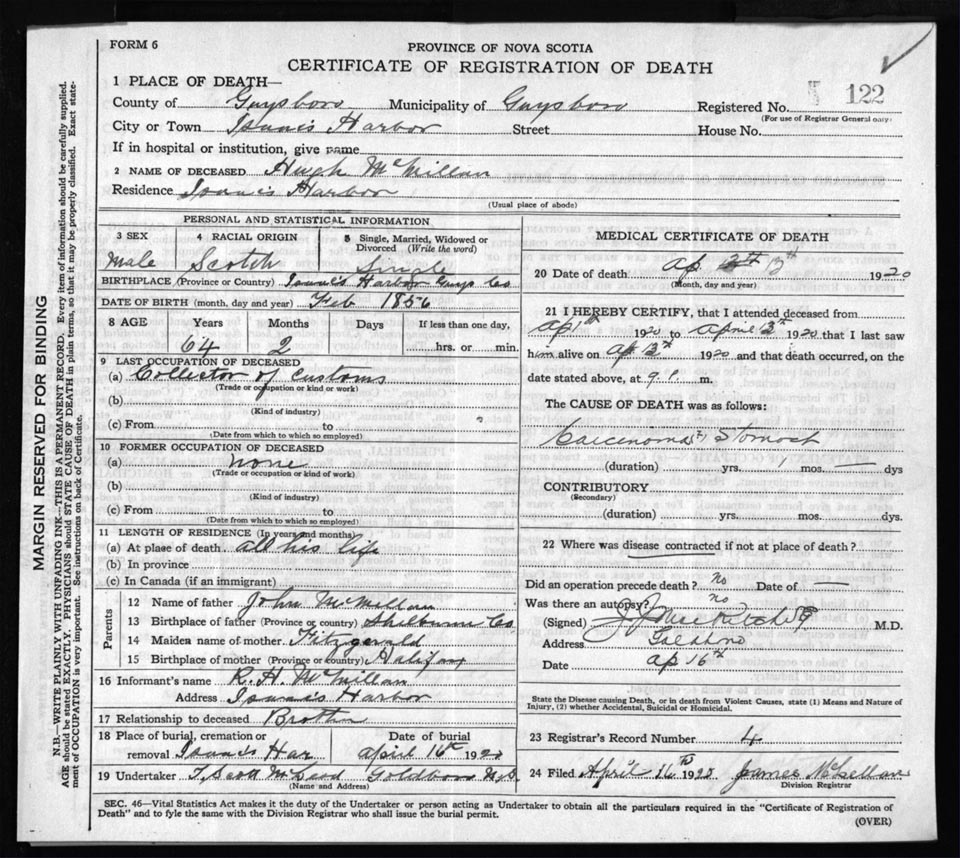 FORM 6
PROVINCE OF NOVA SCOTIA
CERTIFICATE OF REGISTRATION OF DEATH
1 PLACE OF DEATH—
County of Guysboro Municipality of Guysboro Registered No. 122
(For use of Registrar General only)
City or Town Isaac's Harbor Street House No.
If in hospital or institution, give name
2 NAME OF DECEASED Hugh McMillan
Residence Isaac's Harbor
(Usual place of abode)
PERSONAL AND STATISTICAL INFORMATION
3 SEX 4 RACIAL ORIGIN 5 Single, Married, Widowed or Divorced (Write the word)
Male Scotch Single
BIRTHPLACE (Province or Country) Isaac's Harbor Guys Co
DATE OF BIRTH (month, day and year) Feb 1856
8 AGE Years Months Days If less than one day,
64 2 hrs. or min.
9 LAST OCCUPATION OF DECEASED
(a) Collector of Customs
(Trade or occupation or kind or work)
(b)
(Kind of industry)
(c) From to
(Date from which to which so employed)
10 FORMER OCCUPATION OF DECEASED
(a) none
(Trade or occupation kind or work)
(b)
(Kind of industry)
(c) From to
(Date from which to which so employed)
11 LENGTH OF RESIDENCE (In years and months)
(a) At place of death all his life
(b) In province
(c) In Canada (if an immigrant)
Parents
12 Name of father John McMillan
13 Birthplace of father (Province or country) Shelburne Co
14 Maiden name of mother Fitzgerald
15 Birthplace of mother (Province or country) Halifax
16 Informant's name R. H. McMillan
Address Isaac's Harbor
17 Relationship to deceased Brother
18 Place of burial, cremation or removal Isaac's Har Date of burial April 16th 1920
19 Undertaker T. Scott McLeod Goldboro N.S.
(Name and Address)
MEDICAL CERTIFICATE OF DEATH
20 Date of death Ap 13th 1920
(Month, day and year)
21 I HEREBY CERTIFY, that I attended deceased from
Ap 1st 1920 to April 13th 1920 that I last saw
him alive on Ap 13th 1920 and that death occurred, on the
date stated above, at 9 P. m.
The CAUSE OF DEATH was as follows:
Carcinoma of Stomach
(duration) yrs. 1 mos. — dys
CONTRIBUTORY
(Secondary)
(duration) yrs. mos. dys.
22 Where was disease contracted if not at place of death?
Did an operation precede death? No Date of —
Was there an autopsy? no
(Signed) M.D.
Address
Date Ap 16th
State the Disease causing Death, or in death from Violent Causes, state (1) Means and Nature of
Injury, (2) whether Accidental, Suicidal or Homicidal.
23 Registrar's Record Number 4
24 Filed April 16th 1920 James McLellan
Division Registrar
SEC. 46—Vital Statistics Act makes it the duty of the Undertaker or person acting as Undertaker to obtain all the particulars required in the "Certificate of Registration of
Death" and to fyle the same with the Division Registrar who shall issue the burial permit.
(OVER)
MARGIN RESERVED FOR BINDING
N.B.—WRITE PLAINLY WITH UNFADING INK—THIS IS A PERMANENT RECORD. Every item of information should be carefully supplied.
AGE should be stated EXACTLY. PHYSICIANS should STATE CAUSE OF DEATH in plain terms, so that it may be properly classified. Exact state-
ment of OCCUPATION is very important. See instructions on back of Certificate.